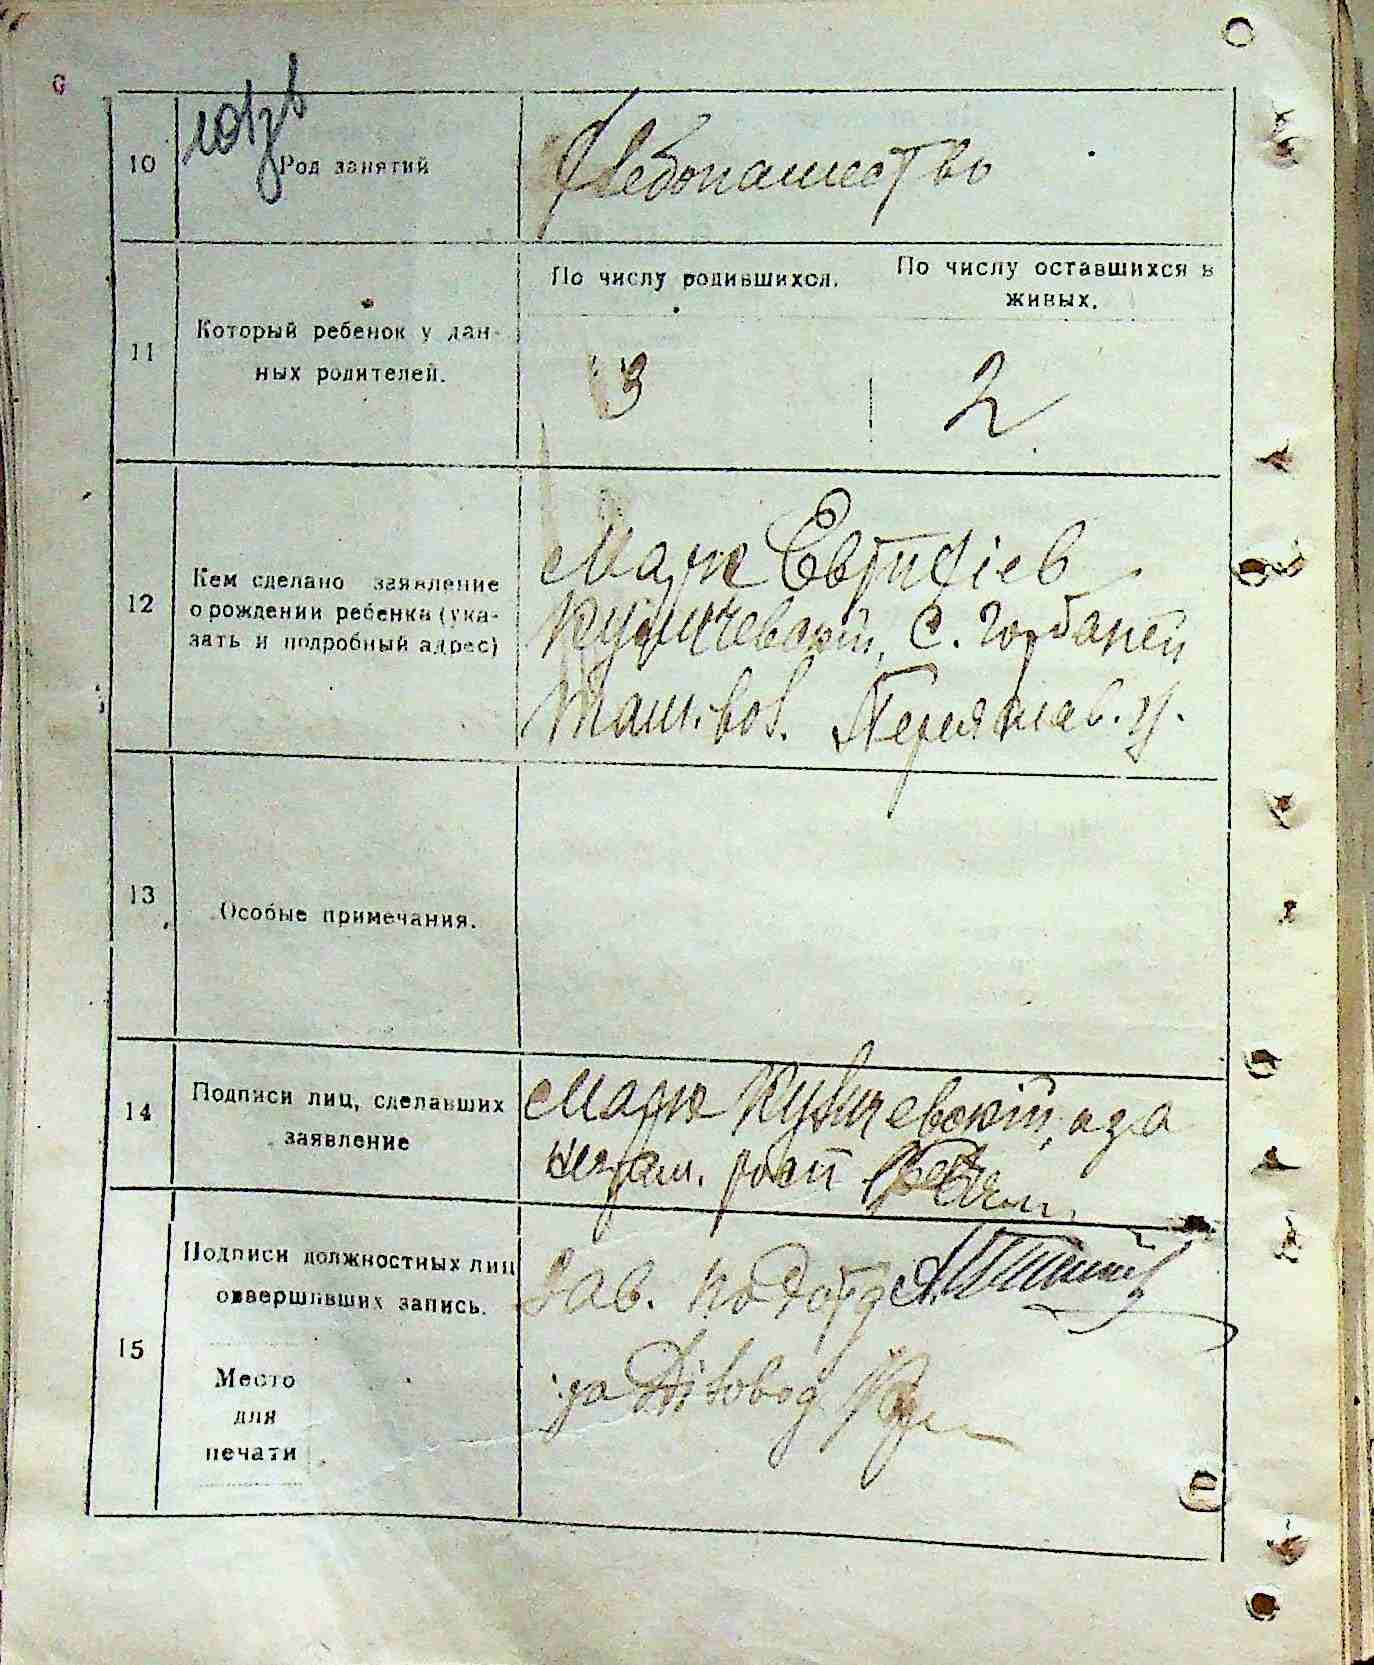 10
Род занятий
Хлебопашество
11
Который ребенок у дан-
ных родителей.
По числу родившихся.
По числу оставшихся в
живых.
3
2
12
Кем сделано заявление
о рождении ребенка (ука-
зать и подробный адрес)
Марк Евтифіев
с. Горбаней
Ташк. вол. Переяслав. у.
13
Особые примечания.
14
Подписи лиц, сделавших
заявление
Марк а за
неграм. росп
15
Подписи должностных лиц
совершивших запись.
Место
для
печати
Зав. Подотд
за Діловод